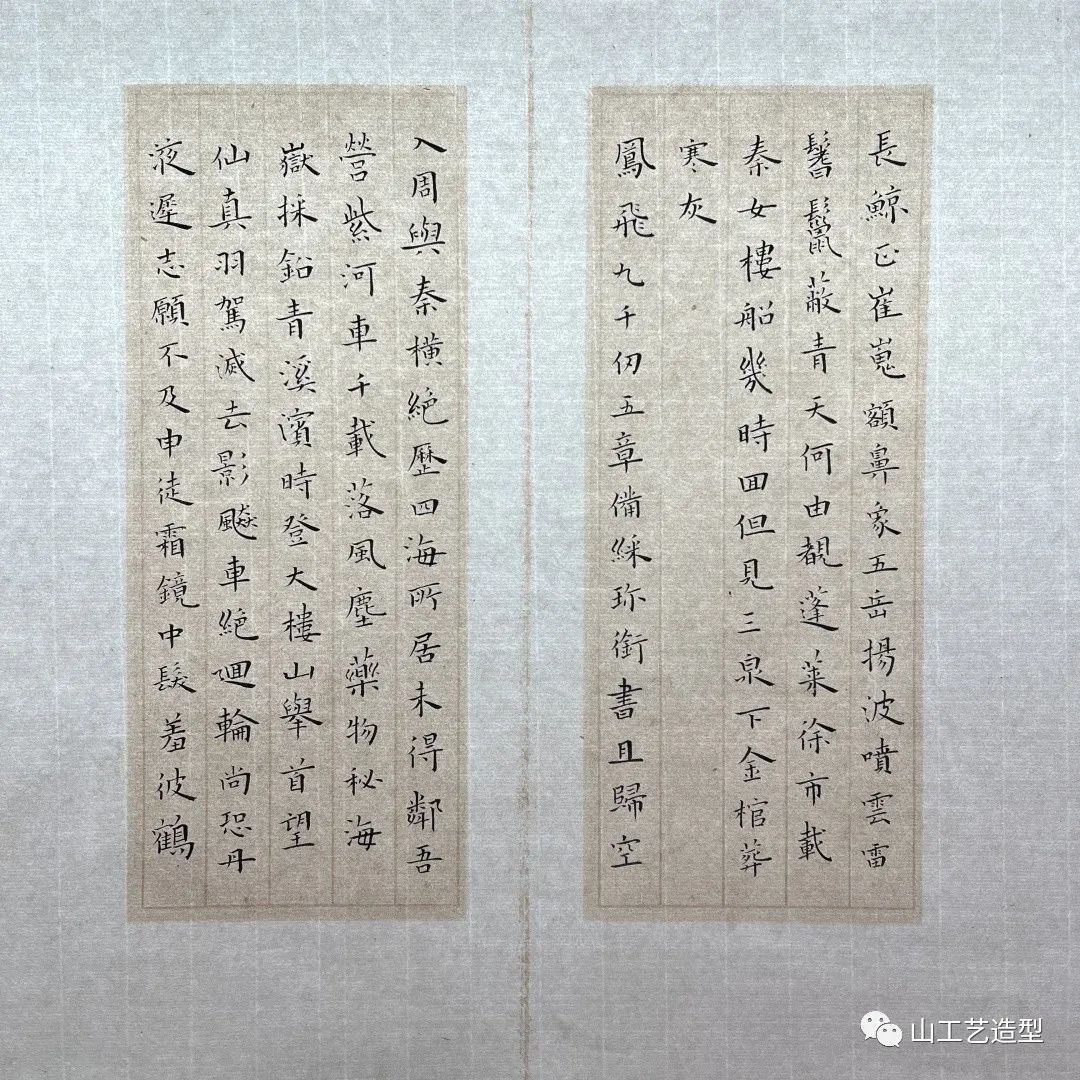 長鯨正崔嵬額鼻象五岳揚波噴雲雷
鬐鬣蔽青天何由覩蓬萊徐市載
秦女樓船幾時回但見三泉下金棺葬
寒灰
鳳飛九千仞五章備綵珍銜書且歸空
入周與秦橫絕歷四海所居未得鄰吾
營紫河車千載落風塵藥物秘海
嶽採鉛青溪濱時登大樓山舉首望
仙真羽駕滅去影飈車絕迴輪尚恐丹
液遲志願不及申徒霜鏡中髮羞彼鶴
山工艺造型